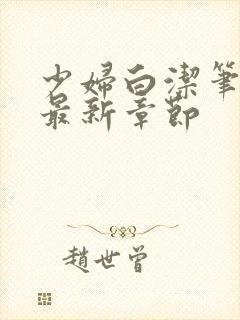 少婦白潔筆
最新章節
趙世曾